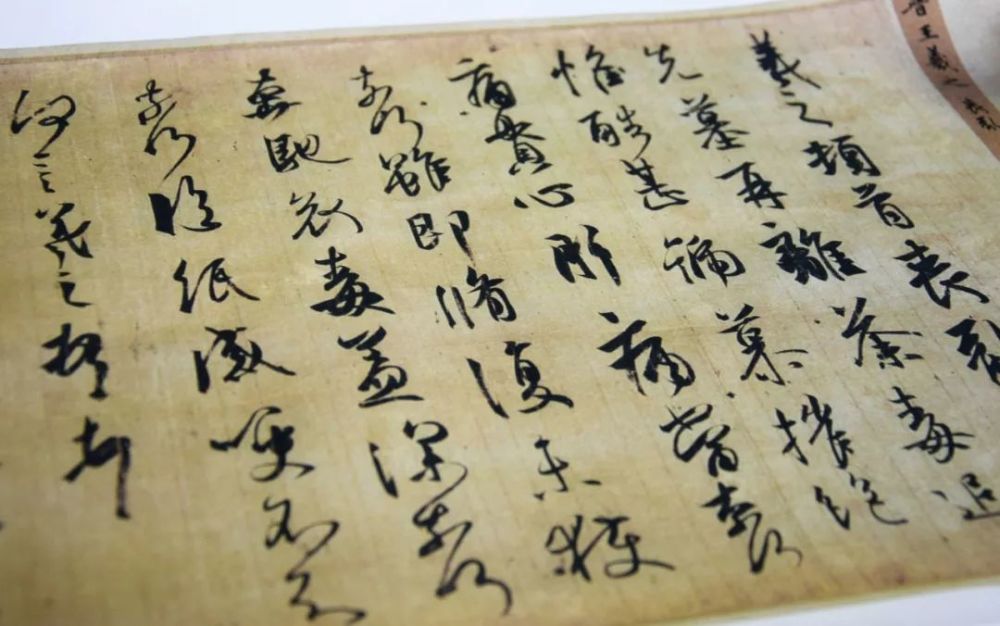 晉王羲之
羲之頓首喪亂
先墓再離荼毒追
惟酷甚號慕摧絕
痛貫心肝痛當柰何
柰何雖即脩復未獲
奔馳哀毒益深柰何
柰何臨紙感哽不知
何言羲之頓首